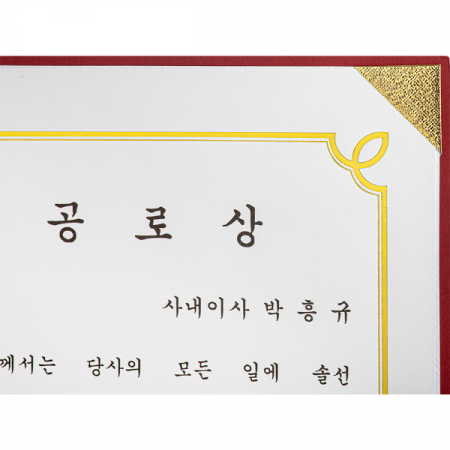 공 로 상
사내이사 박 흥 규
께서는 당사의 모든 일에 솔선